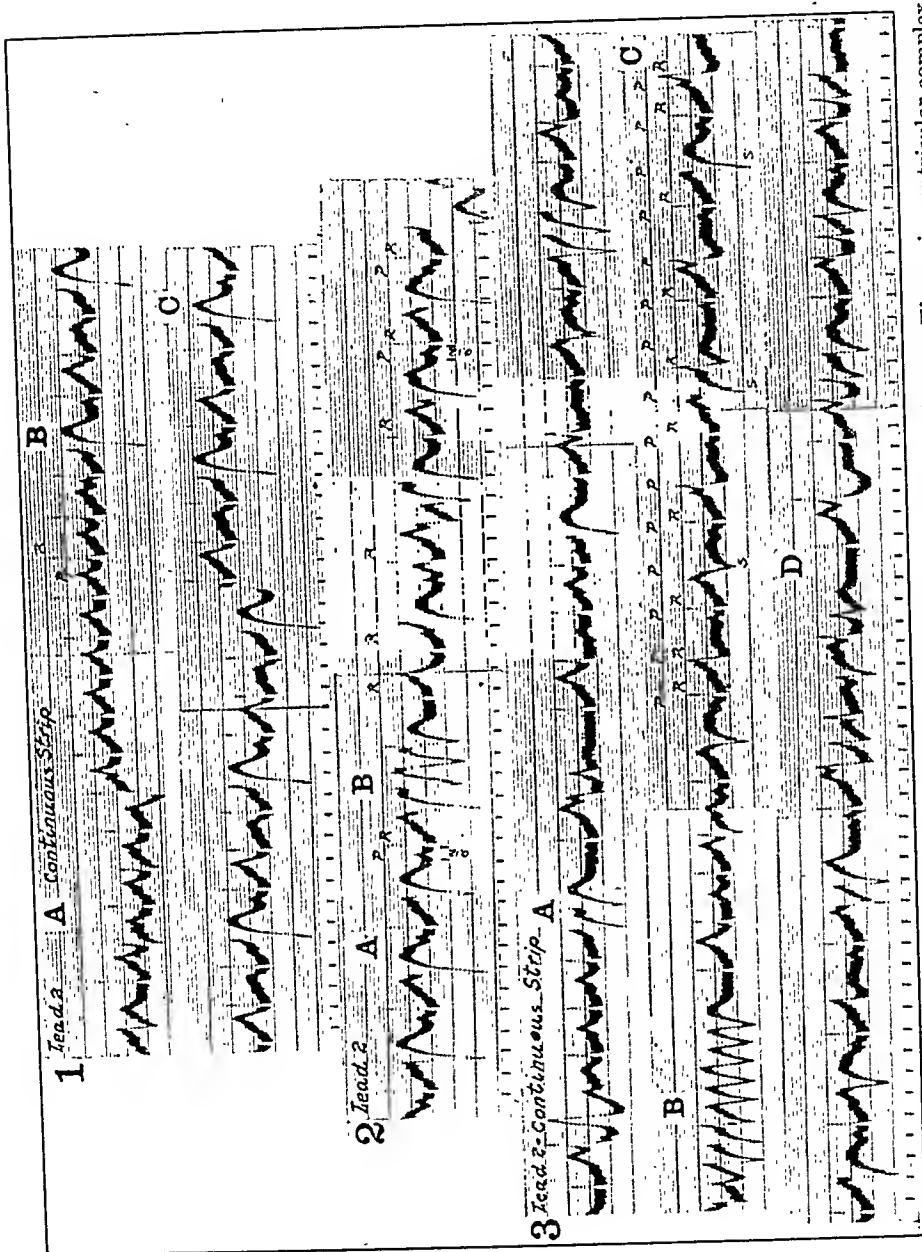 1 Lead 2 A Continuous Strip B
P R
C
2 Lead 2 A B
P R R R R R P R P R
3 Lead 2-Continuous Strip A
B C
P P P P P P P P P P P P P P
R R R R R R R R R R
S S S
D
complex